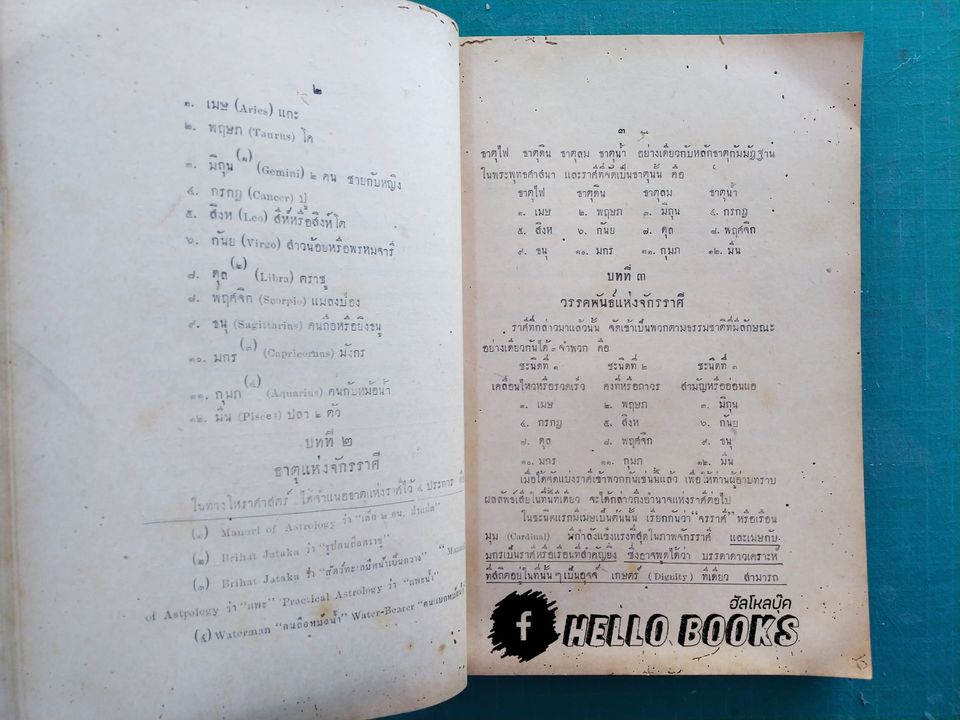 ๒
๑. เมษ (Aries) แกะ
๒. พฤษภ (Taurus) โค
๓. มิถุน(๑) (Gemini) ๒ คน ชายกับหญิง
๔. กรกฎ (Cancer) ปู
๕. สิงห (Leo) สีห์หรือสิงห์โต
๖. กันย (Virgo) สาวน้อยหรือพรหมจารี
๗. ตุล(๒) (Libra) ตราชู
๘. พฤศจิก (Scorpio) แมลงป่อง
๙. ธนู (Sagittarius) คนถือหรือยิงธนู
๑๐. มกร(๓) (Capricornus) มังกร
๑๑. กุมภ(๔) (Aquarius) คนกับหม้อน้ำ
๑๒. มีน (Pisces) ปลา ๒ ตัว
บทที่ ๒
ธาตุแห่งจักรราศี
ในทางโหราศาสตร์ ได้จำแนกธาตุแห่งราศีไว้ ๔ ประการ คือ
(๑) Manual of Astrology ว่า "เด็ก ๒ คน,
(๒) Brihat Jataka ว่า "รูปคนถือตราชู"
(๓) Brihat Jataka ว่า "สัตว์ทะเลมีหน้าเป็นกวาง"
of Astrology ว่า "แพะ" Practical Astrology ว่า "แพะน้ำ"
(๔) Waterman "คนถือหม้อน้ำ" Water-Bearer "คนแบกหม้อน้ำ
๓
ธาตุไฟ ธาตุดิน ธาตุลม ธาตุน้ำ อย่างเดียวกับหลักธาตุกัมมัฏฐาน
ในพระพุทธศาสนา และราศีที่จัดเป็นธาตุนั้น คือ
ธาตุไฟ ธาตุดิน ธาตุลม ธาตุน้ำ
๑. เมษ ๒. พฤษภ ๓. มิถุน ๔. กรกฎ
๕. สิงห ๖. กันย ๗. ตุล ๘. พฤศจิก
๙. ธนู ๑๐. มกร ๑๑. กุมภ ๑๒. มีน
บทที่ ๓
วรรคพันธ์แห่งจักรราศี
ราศีที่กล่าวมาแล้วนั้น จัดเข้าเป็นพวกตามธรรมชาติที่มีลักษณะ
อย่างเดียวกันได้ ๓ จำพวก คือ
ชะนิดที่ ๑ ชะนิดที่ ๒ ชะนิดที่ ๓
เคลื่อนไหวหรือรวดเร็ว คงที่หรือถาวร สามัญหรืออ่อนแอ
๑. เมษ ๒. พฤษภ ๓. มิถุน
๔. กรกฎ ๕. สิงห ๖. กันย
๗. ตุล ๘. พฤศจิก ๙. ธนู
๑๐. มกร ๑๑. กุมภ ๑๒. มีน
เมื่อได้จัดแบ่งราศีเข้าพวกกันเช่นนั้นแล้ว เพื่อให้ท่านผู้อ่านทราบ
ผลลัพธ์เสียในที่นี้ทีเดียว จะได้กล่าวถึงอำนาจแห่งราศีต่อไป
ในชะนิดแรกมีเมษเป็นต้นนั้น เรียกกันว่า "จรราศี" หรือเรือน
มุม (Cardinal) มีกำลังแข็งแรงที่สุดในภาพจักรราศี และเมษกับ
มกรเป็นราศีหรือเรือนที่สำคัญยิ่ง ซึ่งอาจพูดได้ว่า บรรดาดาวเคราะห์
ที่สถิตอยู่ในที่นั้น ๆ เป็นอุจจ์ เกษตร์ (Dignity) ทีเดียว สามารถ
ฮัลโหลบุ๊ค
f HELLO BOOKS